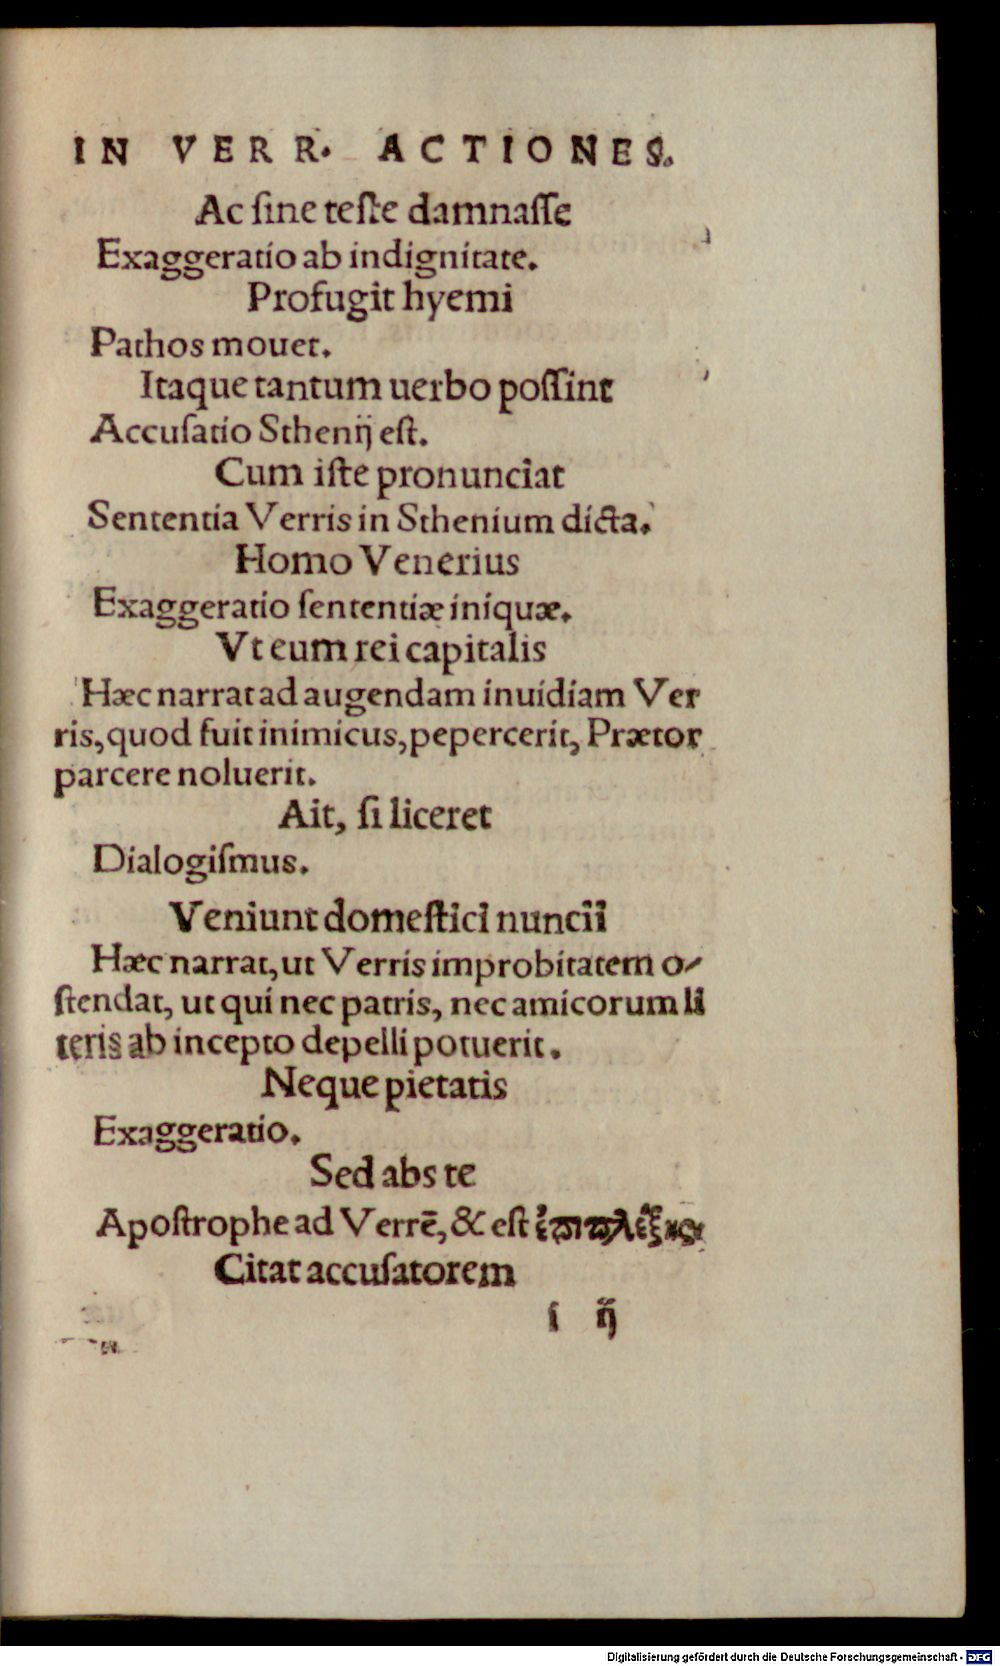 IN VERR. ACTIONES.
Ac ſine teſte damnaſſe
Exaggeratio ab indignitate.
Profugit hyemi
Pathos mouet.
Itaque tantum uerbo poſſint
Accuſatio Sthenij eſt.
Cum iſte pronunciat
Sententia Verris in Sthenium dicta.
Homo Venerius
Exaggeratio ſententiæ iniquæ.
Vt eum rei capitalis
Hæc narrat ad augendam inuidiam Ver
ris, quod fuit inimicus, pepercerit, Prætor
parcere noluerit.
Ait, ſi liceret
Dialogiſmus.
Veniunt domeſtici nuncii
Hæc narrat, ut Verris improbitatem o-
ſtendat, ut qui nec patris, nec amicorum li
teris ab incepto depelli potuerit.
Neque pietatis
Exaggeratio.
Sed abs te
Apoſtrophe ad Verrē, & eſt
Citat accuſatorem
ſ ij
Digitalisierung gefördert durch die Deutsche Forschungsgemeinschaft - DFG